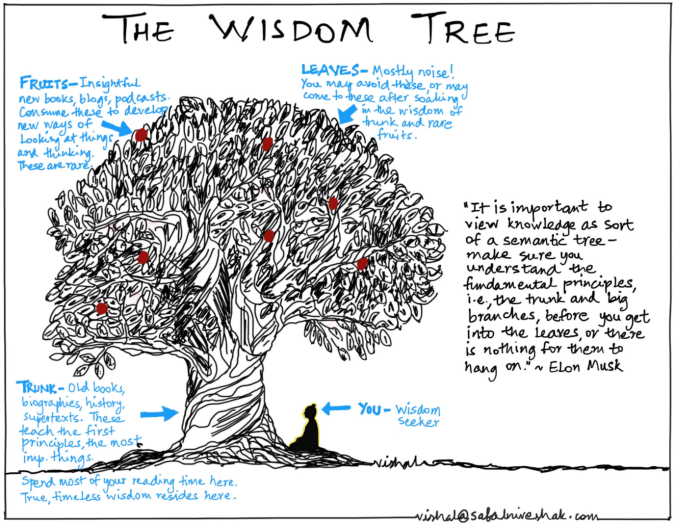 THE WISDOM TREE
FRUITS - Insightful
new books, blogs, podcasts.
Consume these to develop
new ways of
Looking at things
and thinking.
These are rare.
LEAVES - Mostly noise!
You may avoid these, or may
come to these after soaking
in the wisdom of
trunk and rare
fruits.
"It is important to
view knowledge as sort
of a semantic tree -
make sure you
understand the
fundamental principles,
i.e., the trunk and big
branches, before you get
into the leaves, or there
is nothing for them to
hang on." ~ Elon Musk
TRUNK - Old books,
biographies, history,
supertexts. These
teach the first
principles, the most
imp. things.
Spend most of your reading time here.
True, timeless wisdom resides here.
YOU - Wisdom
Seeker
vishal
vishal@safalniveshak.com